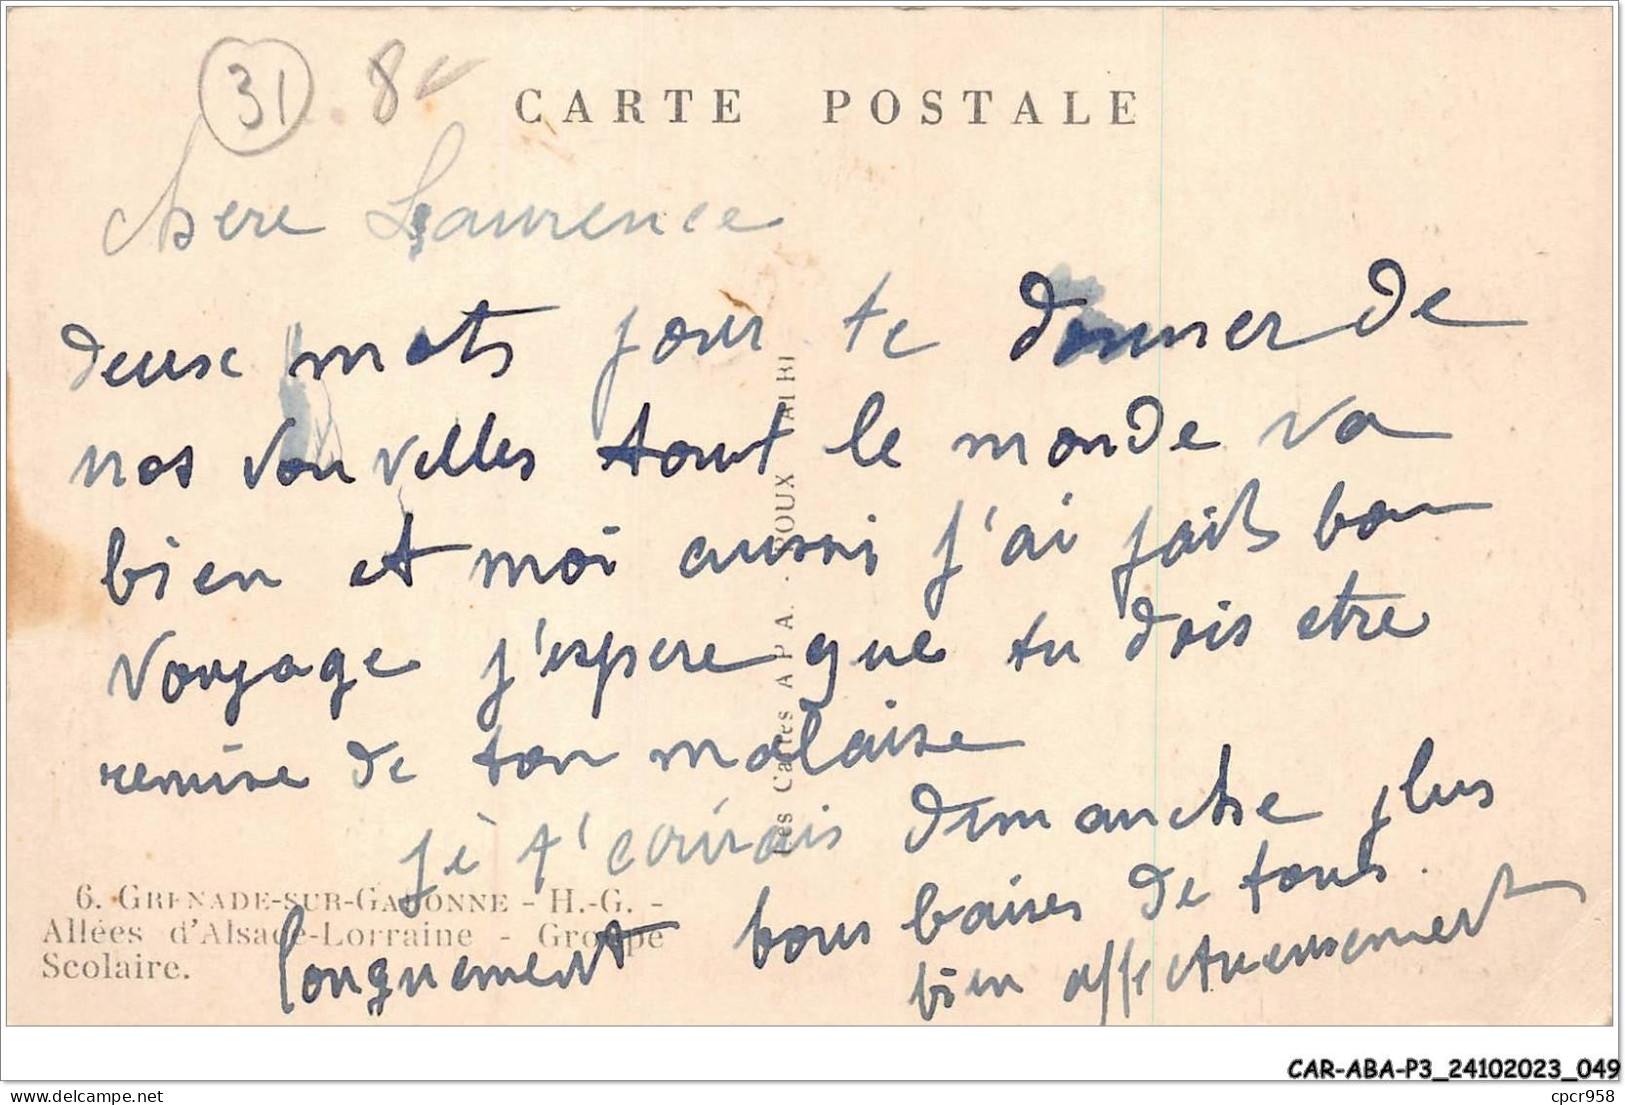 31 8
CARTE POSTALE
chere Laurence
deux mots pour te donner de
nos nouvelles tout le monde va
bien et moi aussi j'ai fait bon
voyage j'espere que tu dois etre
remise de ton malaise
je t'ecrirais dimanche plus
longuement bons baises de tous
bien affectueusement
6. GRENADE-SUR-GARONNE - H.-G. -
Allées d'Alsace-Lorraine - Groupe
Scolaire.
Les Cartes A.P.A. - POUX ALBI
CAR-ABA-P3_24102023_049
delcampe.net
cpcr958